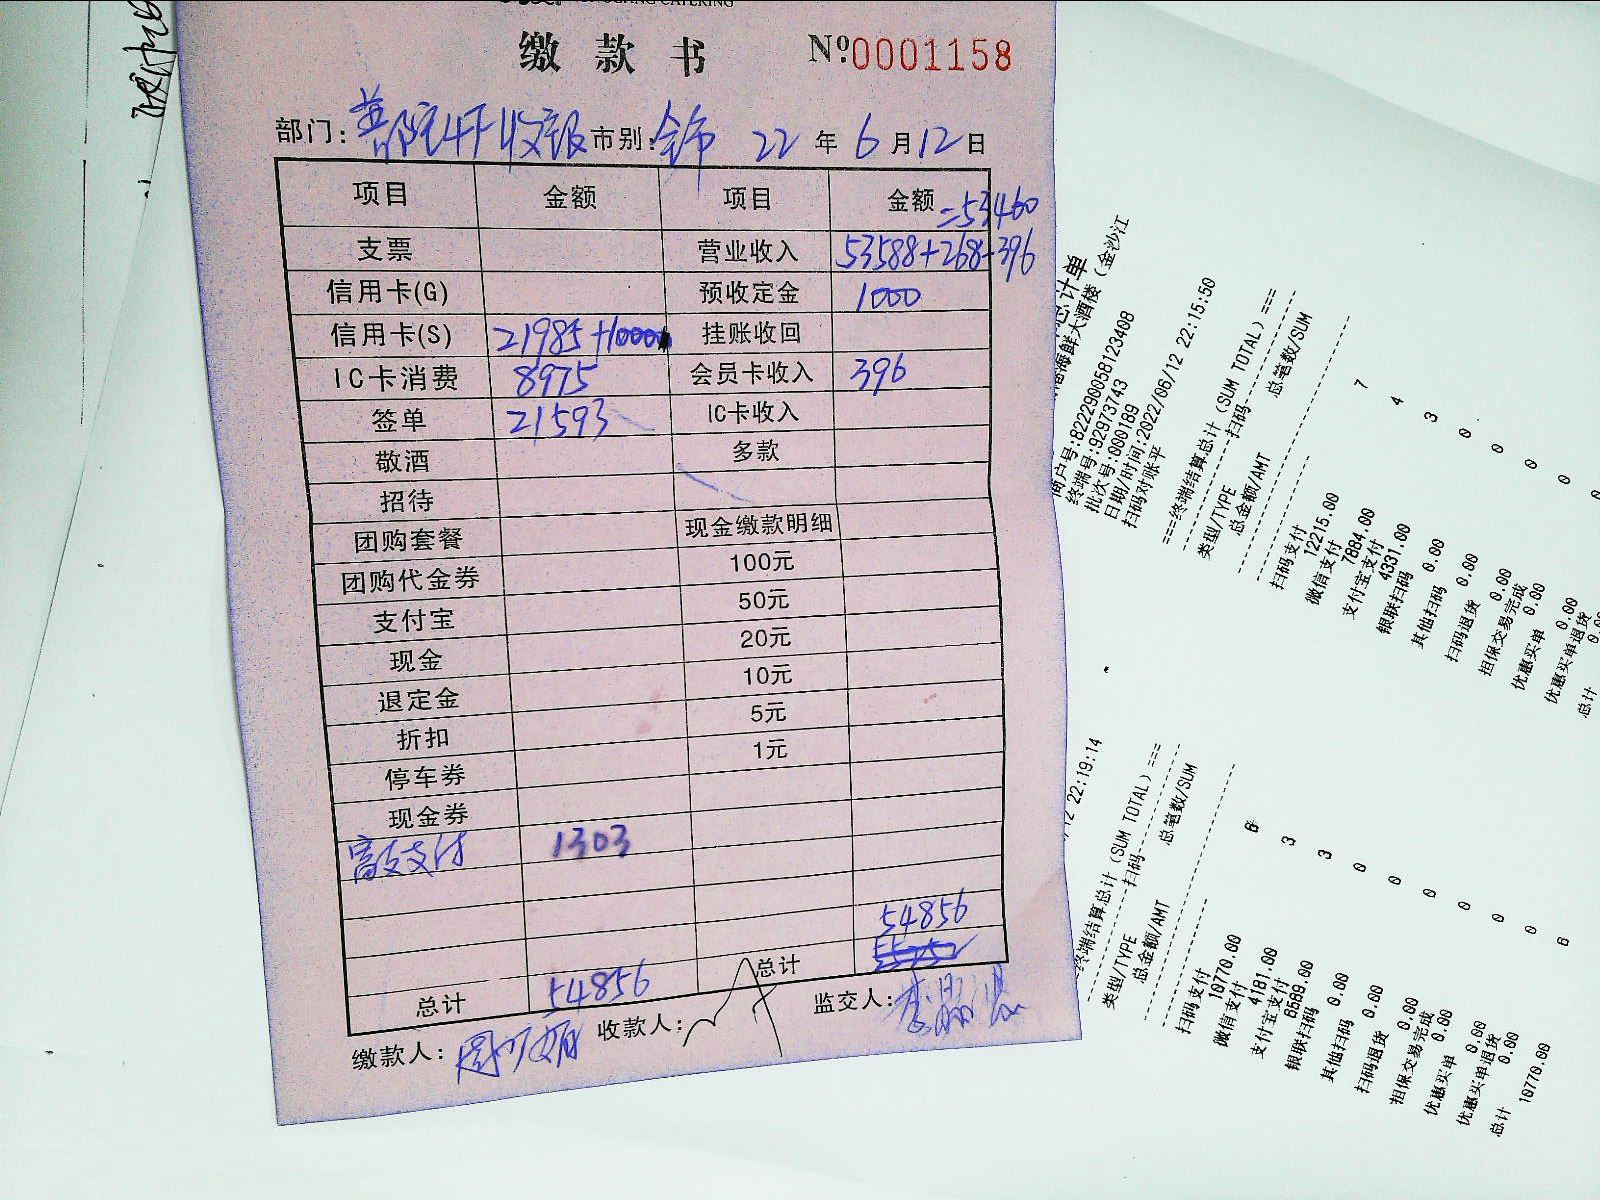 CATERING
缴款书 №:0001158
部门: 普陀4F收银 市别: 全市 22年6月12日
项目 金额 项目 金额 =53460
支票 营业收入 53588+268-396
信用卡(G) 预收定金 1000
信用卡(S) 21985+1000 挂账收回
IC卡消费 8975 会员卡收入 396
签单 21593 IC卡收入
敬酒 多款
招待
团购套餐 现金缴款明细
团购代金券 100元
支付宝 50元
现金 20元
退定金 10元
折扣 5元
停车券 1元
现金券
1303
54856
总计 54856 总计
缴款人: 收款人: 监交人:
总计单
海鲜大酒楼(金沙江
商户号:822290058123408
终端号:92973743
批次号:000189
日期/时间:2022/06/12 22:15:50
扫码对账平
===终端结算总计(SUM TOTAL)===
扫码
类型/TYPE 总笔数/SUM
总金额/AMT
扫码支付 7
12215.00
微信支付 4
7884.00
支付宝支付 3
4331.00
银联扫码 0
0.00
其他扫码 0
0.00
扫码退货 0
0.00
担保交易完成 0
0.00
优惠买单 0
0.00
优惠买单退货
总计
12 22:19:14
终端结算总计(SUM TOTAL)===
扫码
类型/TYPE 总笔数/SUM
总金额/AMT
扫码支付 6
10770.00
微信支付 3
4181.00
支付宝支付 3
6589.00
银联扫码 0
0.00
其他扫码 0
0.00
扫码退货 0
0.00
担保交易完成 0
0.00
优惠买单 0
0.00
优惠买单退货 0
0.00
总计 6
10770.00